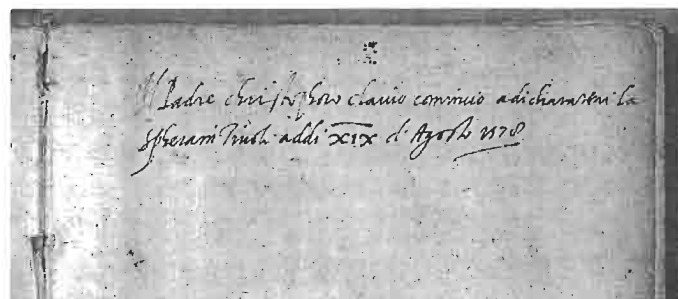 Il Padre christophoro clauio comincio a dichiararmi la
spherain Tiuoli addi XIX d' Agosto 1578